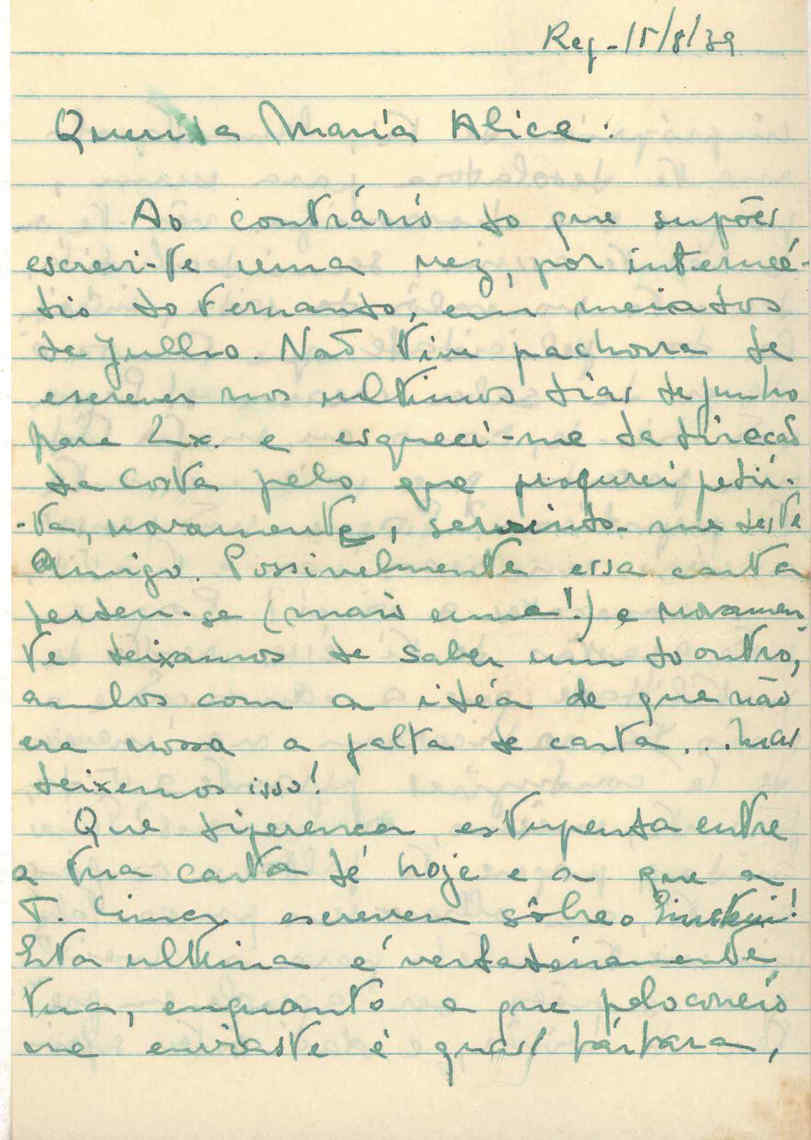 Reg - 15/8/39
Querida Maria Alice:
Ao contrário do que supões
escrevi-te uma vez, por intermé-
dio do Fernando, em meiados
de Julho. Não tive pachorra de
escrever nos ultimos dias de junho
para Lx. e esqueci-me da direcão
da Costa pelo que procurei pedir-
-ta, novamente, servindo-me deste
Amigo. Possivelmente essa carta
perdeu-se (mais uma!) e novamen-
te deixamos de saber um do outro,
ambos com a idéa de que não
era nossa a falta de carta... Mas
deixemos isso!
Que diferença estupenda entre
a tua carta de hoje e a que a
T. escreveu sôbre o Einstein!
Esta ultima é verdadeiramente
tua, enquanto a que pelo correio
me enviaste é quasi bárbara,